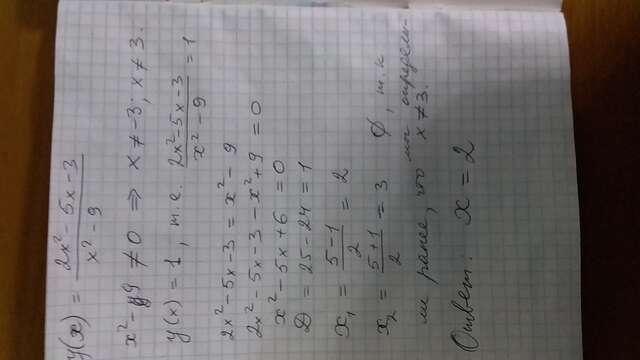 y(x) = (2x² - 5x - 3)/(x² - 9)
x² - 9 ≠ 0 ⇒ x ≠ -3; x ≠ 3.
y(x) = 1, т.е. (2x² - 5x - 3)/(x² - 9) = 1
2x² - 5x - 3 = x² - 9
2x² - 5x - 3 - x² + 9 = 0
x² - 5x + 6 = 0
D = 25 - 24 = 1
x₁ = (5 - 1)/2 = 2
x₂ = (5 + 1)/2 = 3 ∅, т.к
мы определи-
ли ранее, что x ≠ 3.
Ответ: x = 2